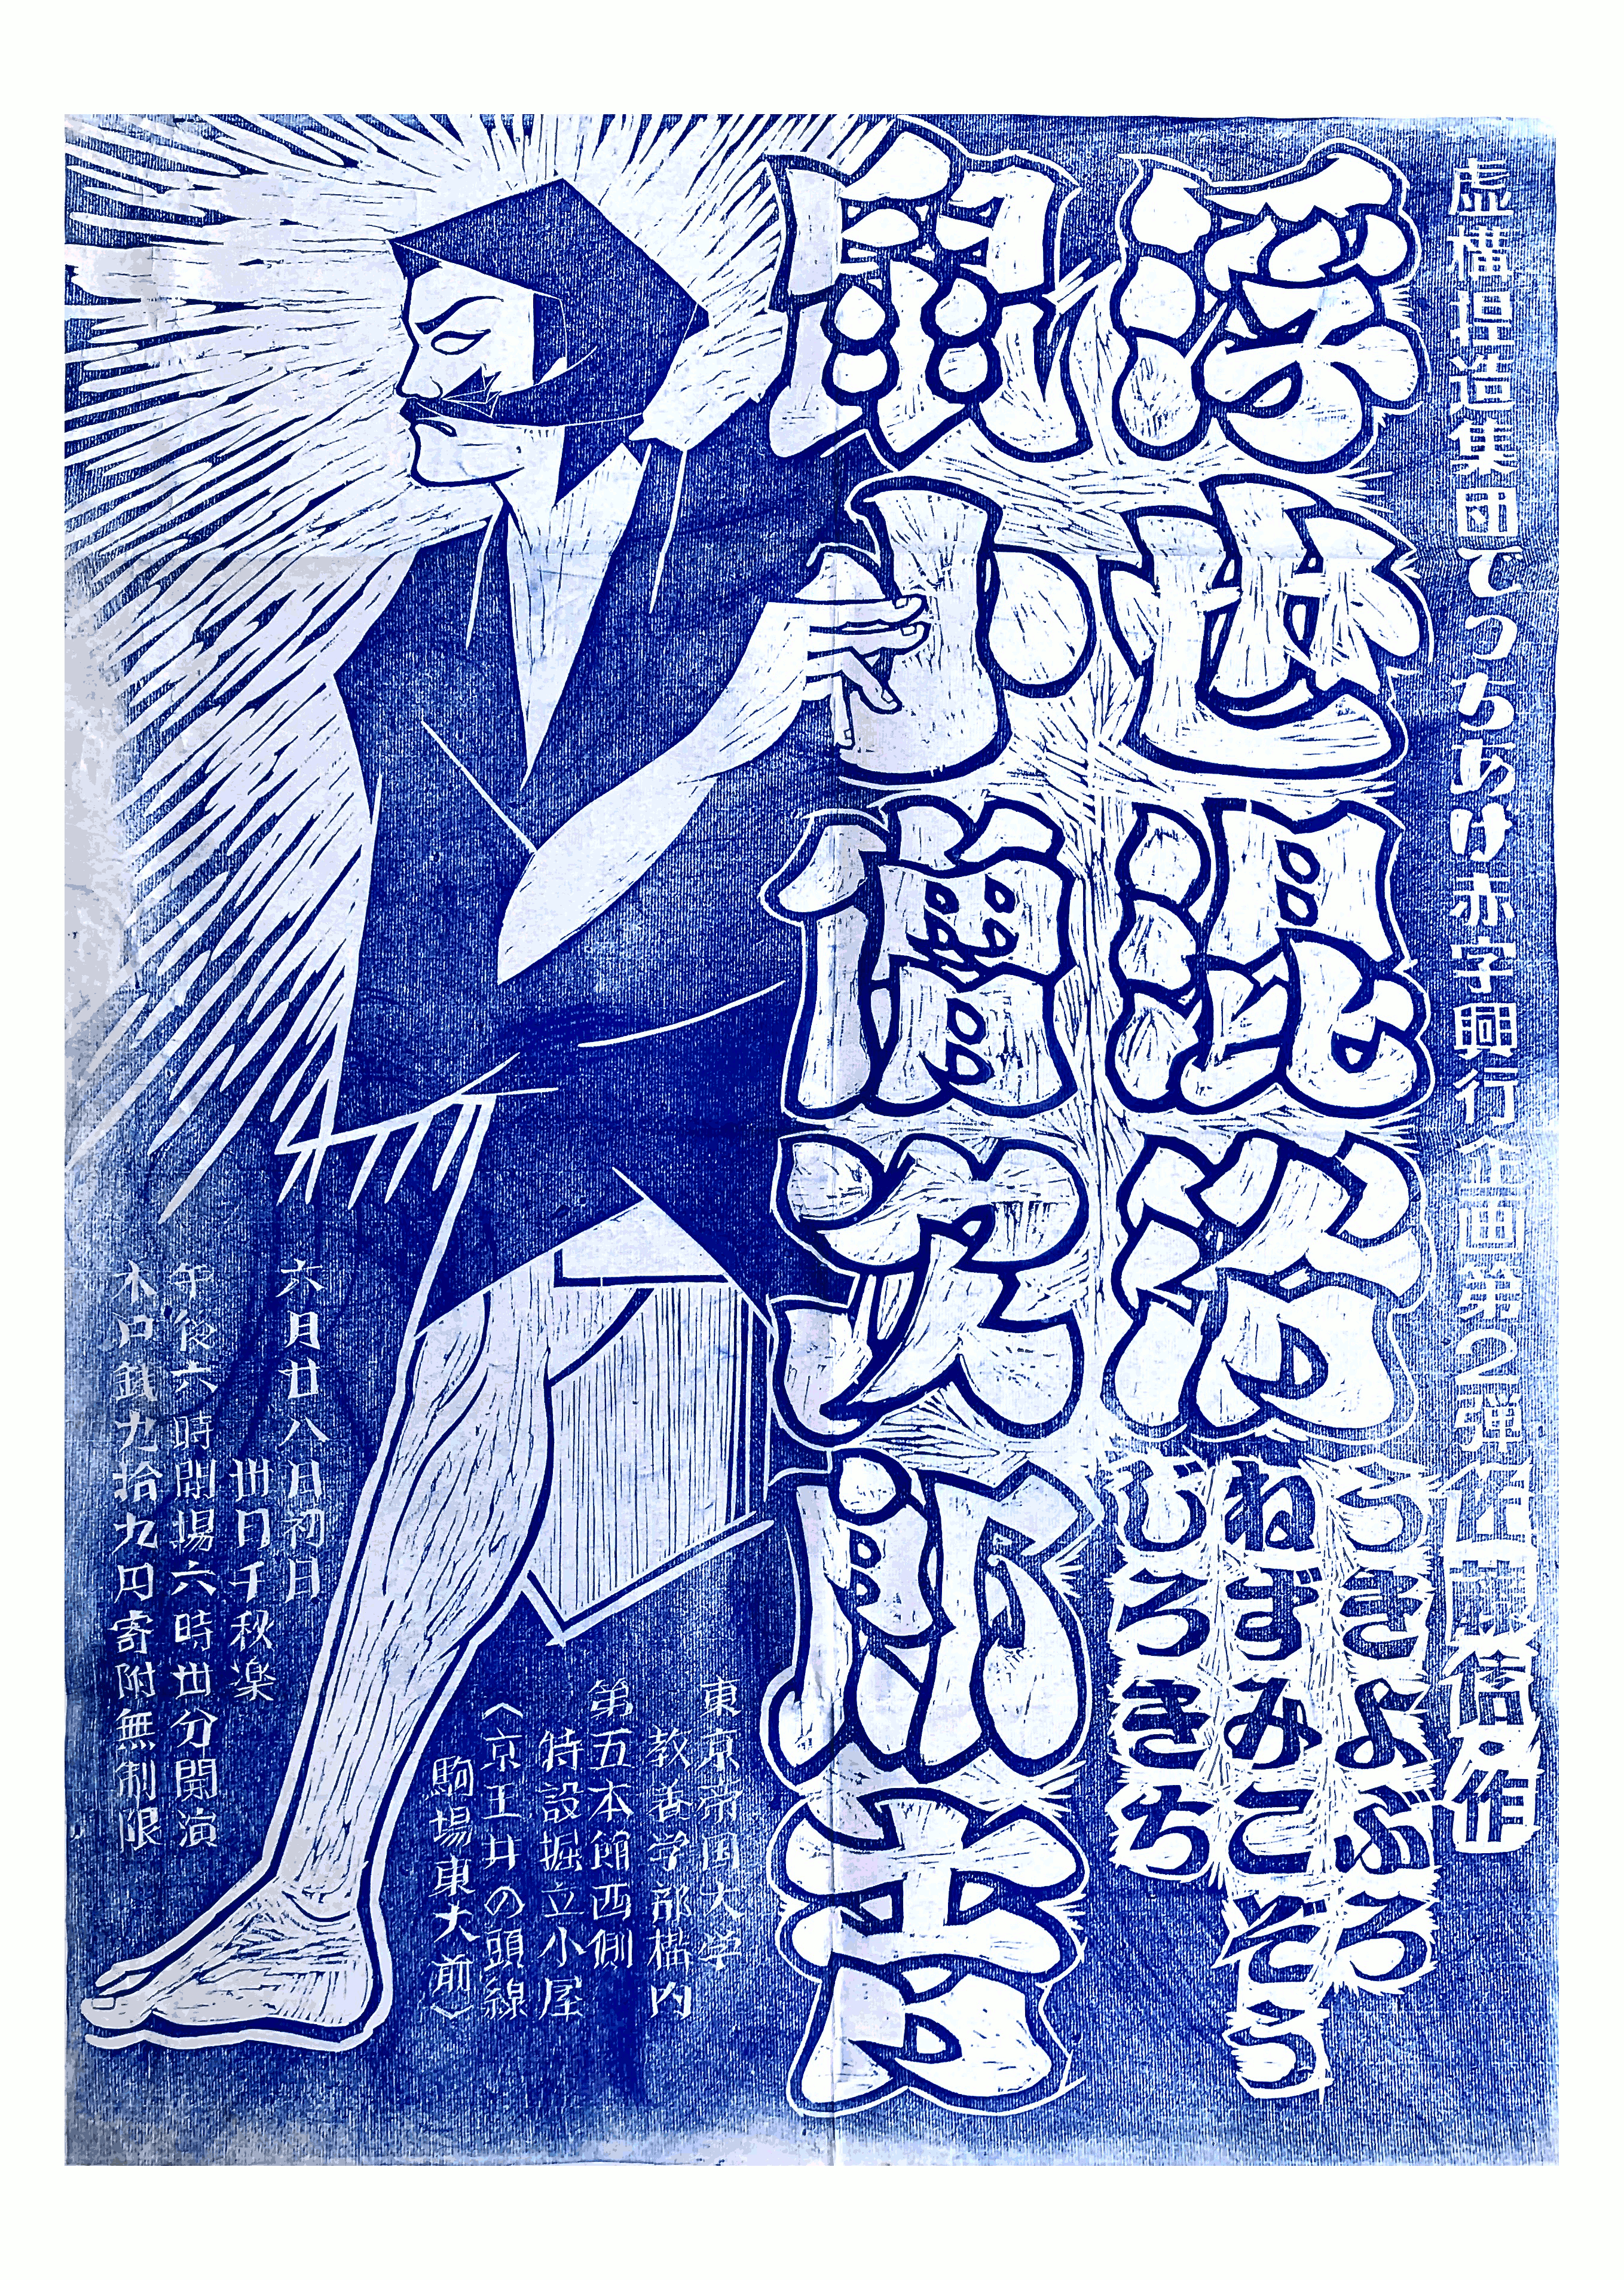 虚構捏造集団でっちあけ赤字興行企画第2弾
佐藤信・作
浮世混浴
うきよぶろ
ねずみこぞう
じろきち
鼠小僧次郎吉
東京帝国大学
教養学部構内
第五本館西側
特設掘立小屋
〈京王井の頭線
駒場東大前〉
六月廿八日初日
卅日千秋楽
午後六時開場六時卅分開演
木戸銭九拾九円寄附無制限